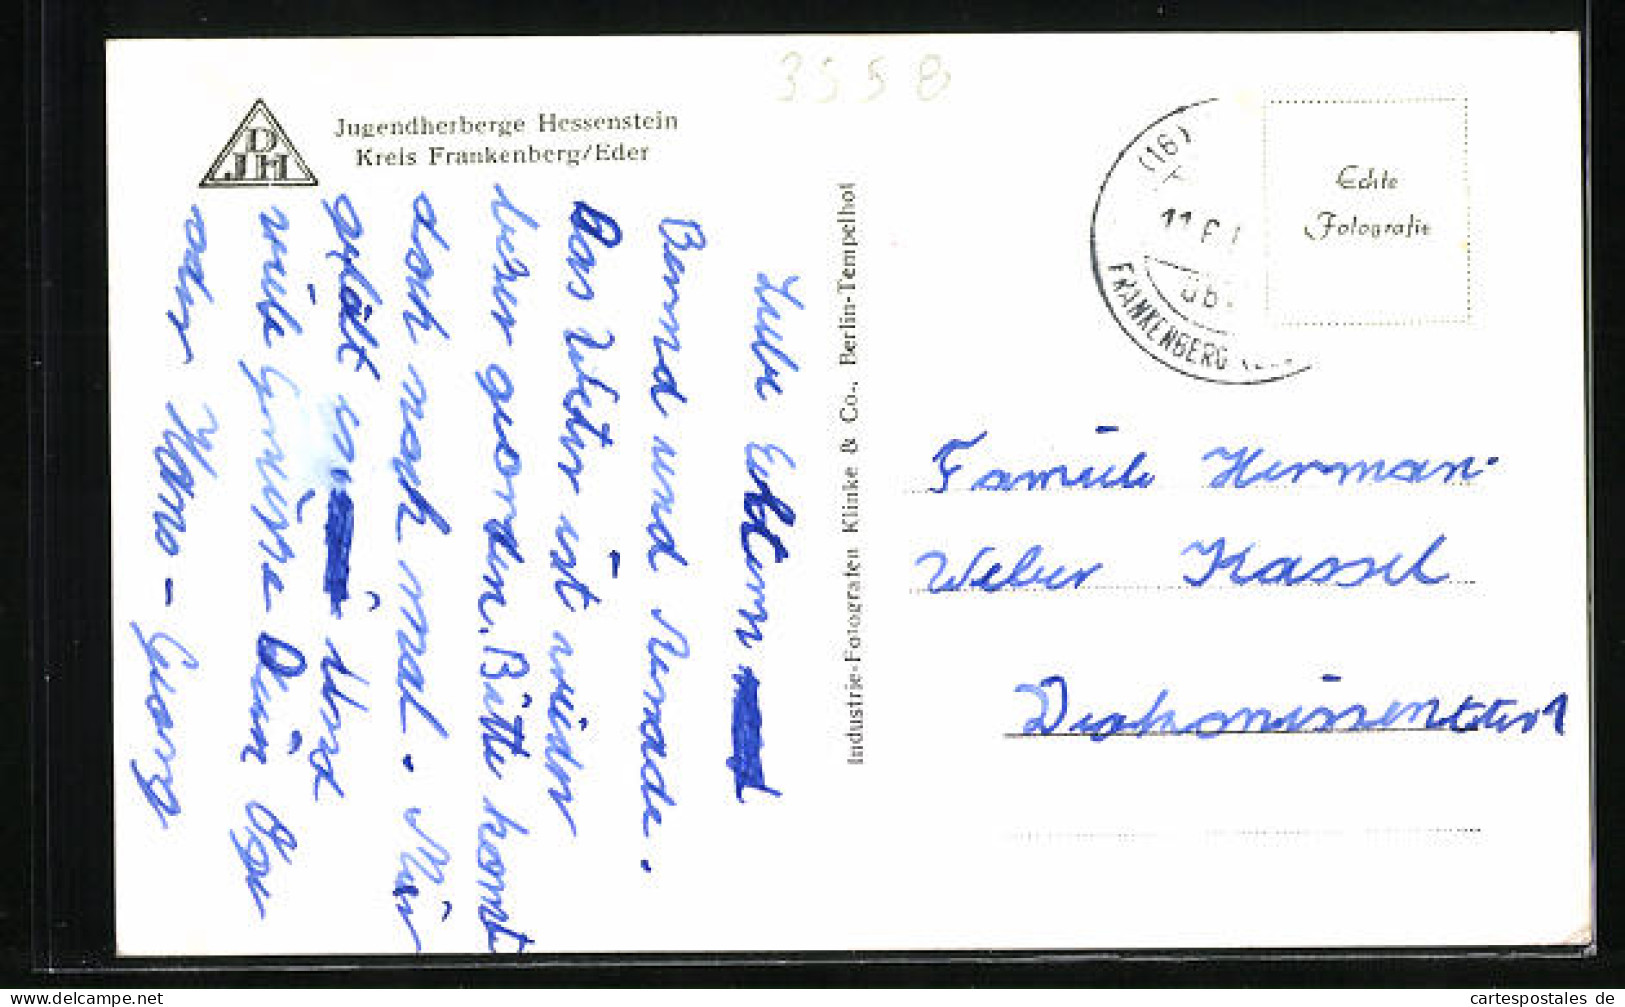 3558
DJH
Jugendherberge Hessenstein
Kreis Frankenberg/Eder
Liebe Eltern
Bernd und
Das Wetter ist wieder
besser geworden. Bitte komt
doch noch mal. Mir
gefält es. Und
viele Grüße Dein
oder Hans-Georg
Industrie-Fotografen Klinke & Co., Berlin-Tempelhof
(16)
FRANKENBERG
Echte
Fotografie
Familie Herman
Weber Kassel